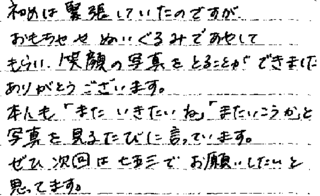 初めは緊張していたのですが
おもちゃやぬいぐるみであやして
もらい、笑顔の写真をとることができました
ありがとうございます。
本人も「またいきたいね」「またいこうか」と
写真を見るたびに言っています。
ぜひ次回は七五三でお願いしたいと
思ってます。